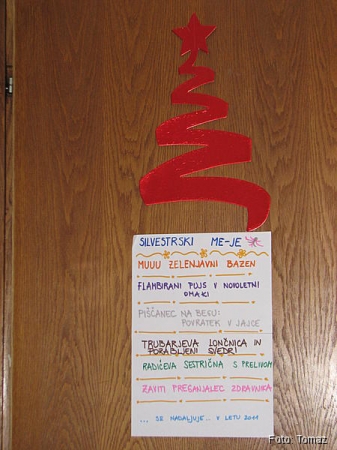 SILVESTRSKI ME-JE
MUUU ZELENJAVNI BAZEN
FLAMBIRANI PUJS V NOVOLETNI
OMAKI
PIŠČANEC NA BEGU:
POVRATEK V JAJCE
TRUBARJEVA LONČNICA IN
PORABLJENI SVEDRI
RADIČEVA SESTRIČNA S PRELIVOM
ZAVITI PREGANJALEC ZDRAVNIKA
... SE NADALJUJE... V LETU 2011
Foto: Tomaz